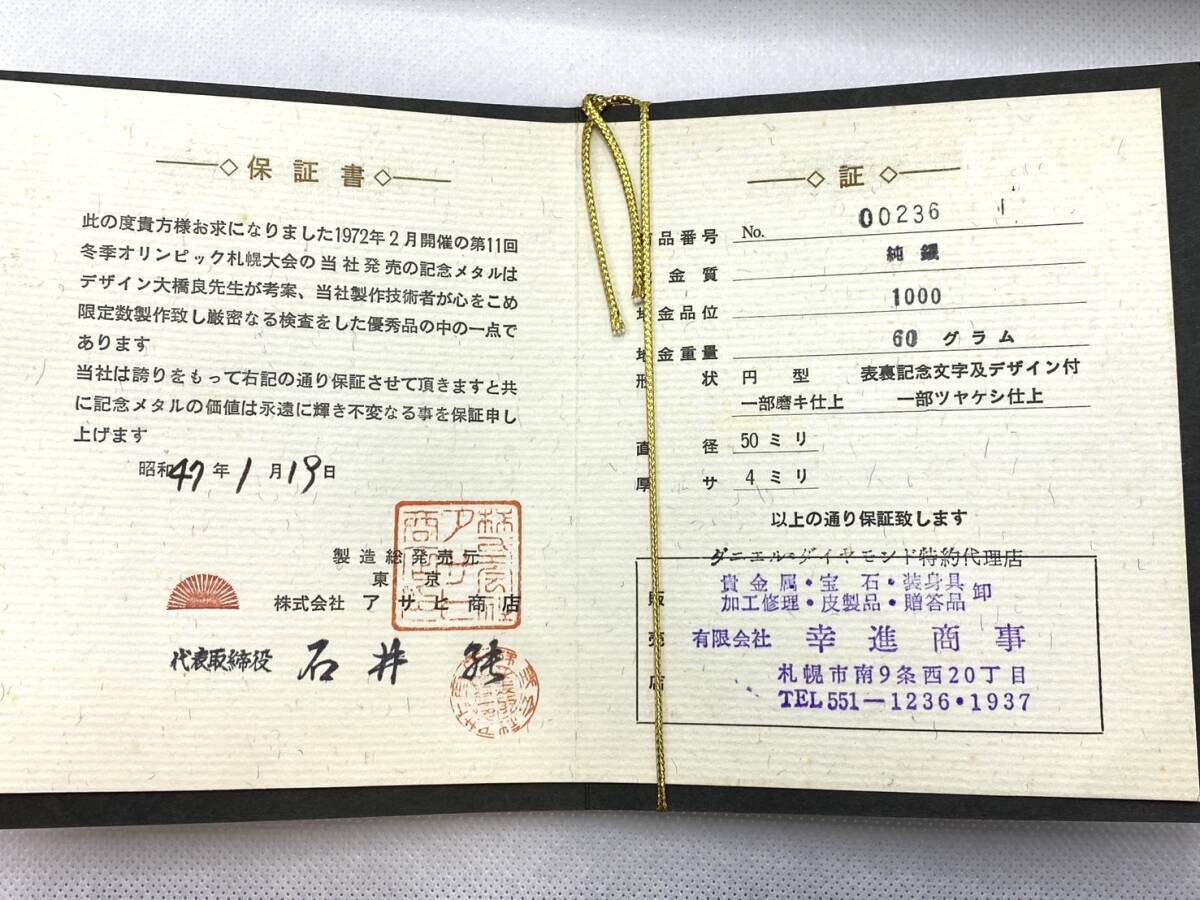 保証書
此の度貴方様お求になりました1972年2月開催の第11回
冬季オリンピック札幌大会の当社発売の記念メタルは
デザイン大橋良先生が考案、当社製作技術者が心をこめ
限定数製作致し厳密なる検査をした優秀品の中の一点で
あります
当社は誇りをもって右記の通り保証させて頂きますと共
に記念メタルの価値は永遠に輝き不変なる事を保証申し
上げます
昭和47年1月19日
製造総発売元
東京
株式会社 アサヒ商店
代表取締役 石井
証
品番号 No. 00236
金質 純銀
金品位 1000
地金重量 60グラム
形状 円型 表裏記念文字及デザイン付
一部磨キ仕上 一部ツヤケシ仕上
直径 50ミリ
厚サ 4ミリ
以上の通り保証致します
ダニエル・ダイヤモンド特約代理店
販売店
貴金属・宝石・装身具
加工修理・皮製品・贈答品 卸
有限会社 幸進商事
札幌市南9条西20丁目
TEL551-1236・1937